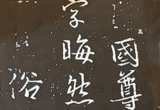 國尊
晦然
字
俗